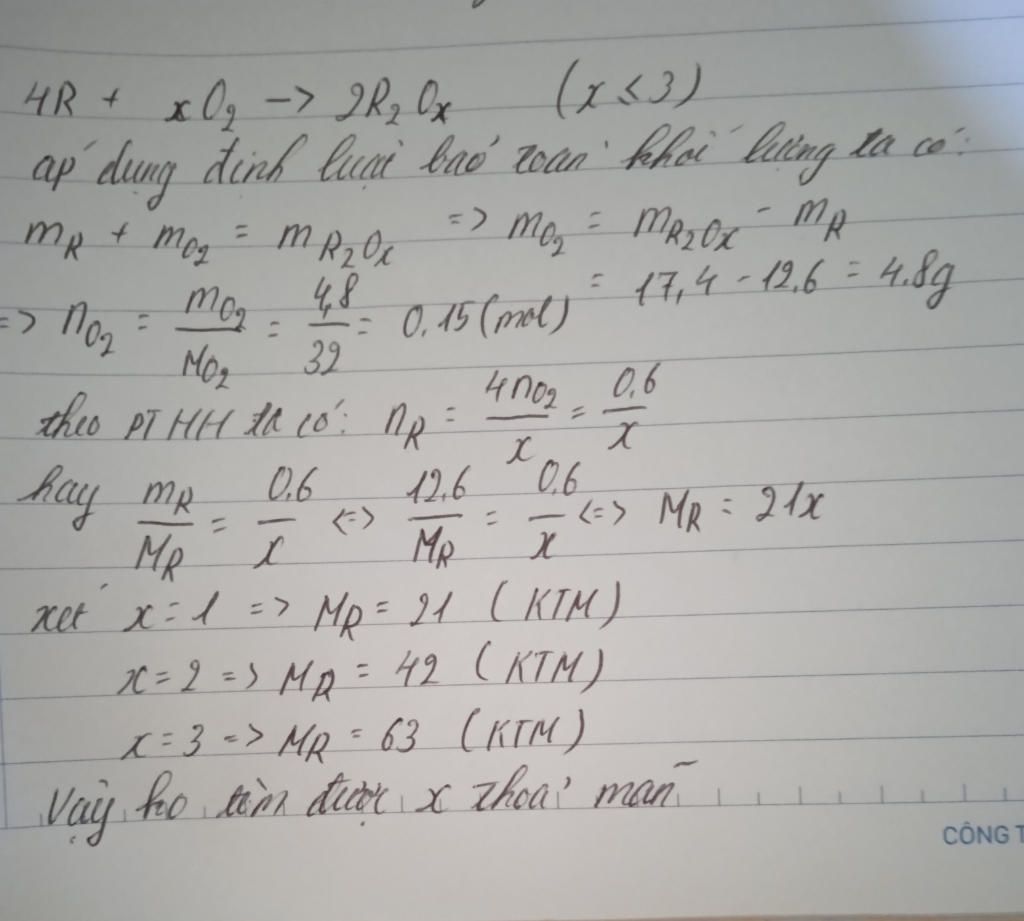 4R + xO₂ -> 2R₂Oₓ (x ≤ 3)
áp dụng định luật bảo toàn khối lượng ta có:
mR + mO₂ = mR₂Oₓ => mO₂ = mR₂Oₓ - mR
= 17,4 - 12,6 = 4.8g
=> nO₂ = mO₂/MO₂ = 4,8/32 = 0.15 (mol)
theo PTHH ta có: nR = 4nO₂/x = 0.6/x
hay mR/MR = 0.6/x <=> 12.6/MR = 0.6/x <=> MR = 21x
xét x = 1 => MR = 21 (KTM)
x = 2 => MR = 42 (KTM)
x = 3 => MR = 63 (KTM)
Vậy ko tìm được x thỏa mãn
CÔNG T